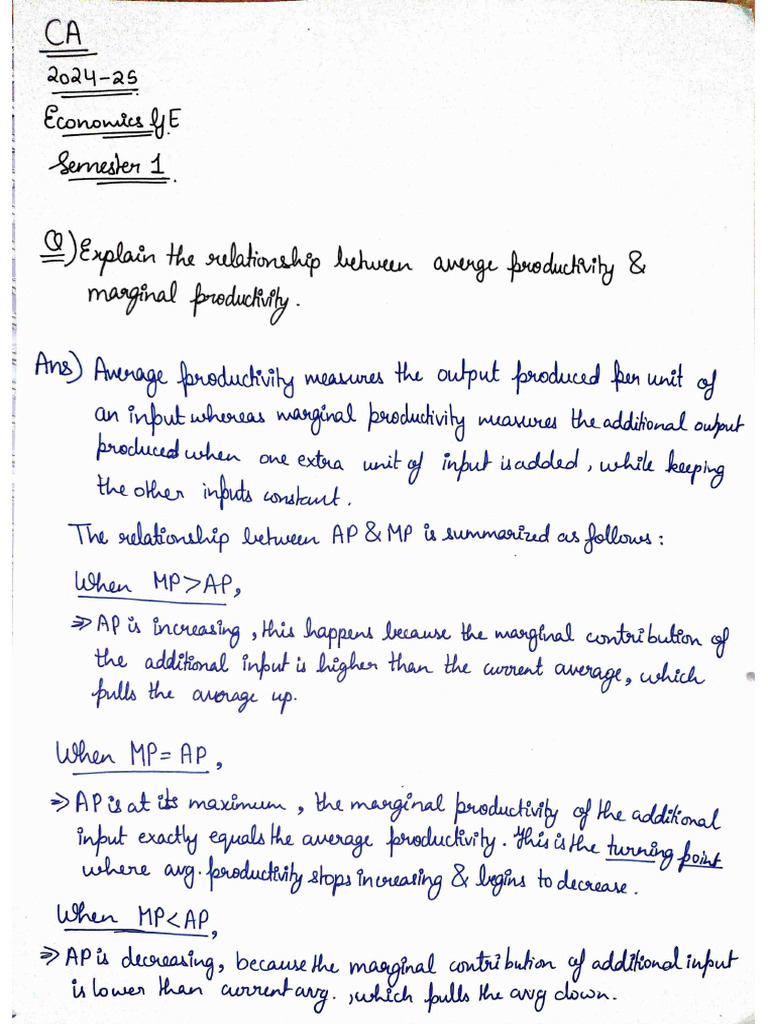 CA
2024-25
Economics GE
Semester 1.
Q) Explain the relationship between averge productivity &
marginal productivity.
Ans) Average productivity measures the output produced per unit of
an input whereas marginal productivity measures the additional output
produced when one extra unit of input is added, while keeping
the other inputs constant.
The relationship between AP & MP is summarized as follows:
When MP>AP,
⇒ AP is increasing, this happens because the marginal contribution of
the additional input is higher than the current average, which
pulls the average up.
When MP = AP,
⇒ AP is at its maximum, the marginal productivity of the additional
input exactly equals the average productivity. This is the turning point
where avg. productivity stops increasing & begins to decrease.
When MP<AP,
⇒ AP is decreasing, because the marginal contribution of additional input
is lower than current avg., which pulls the avg down.